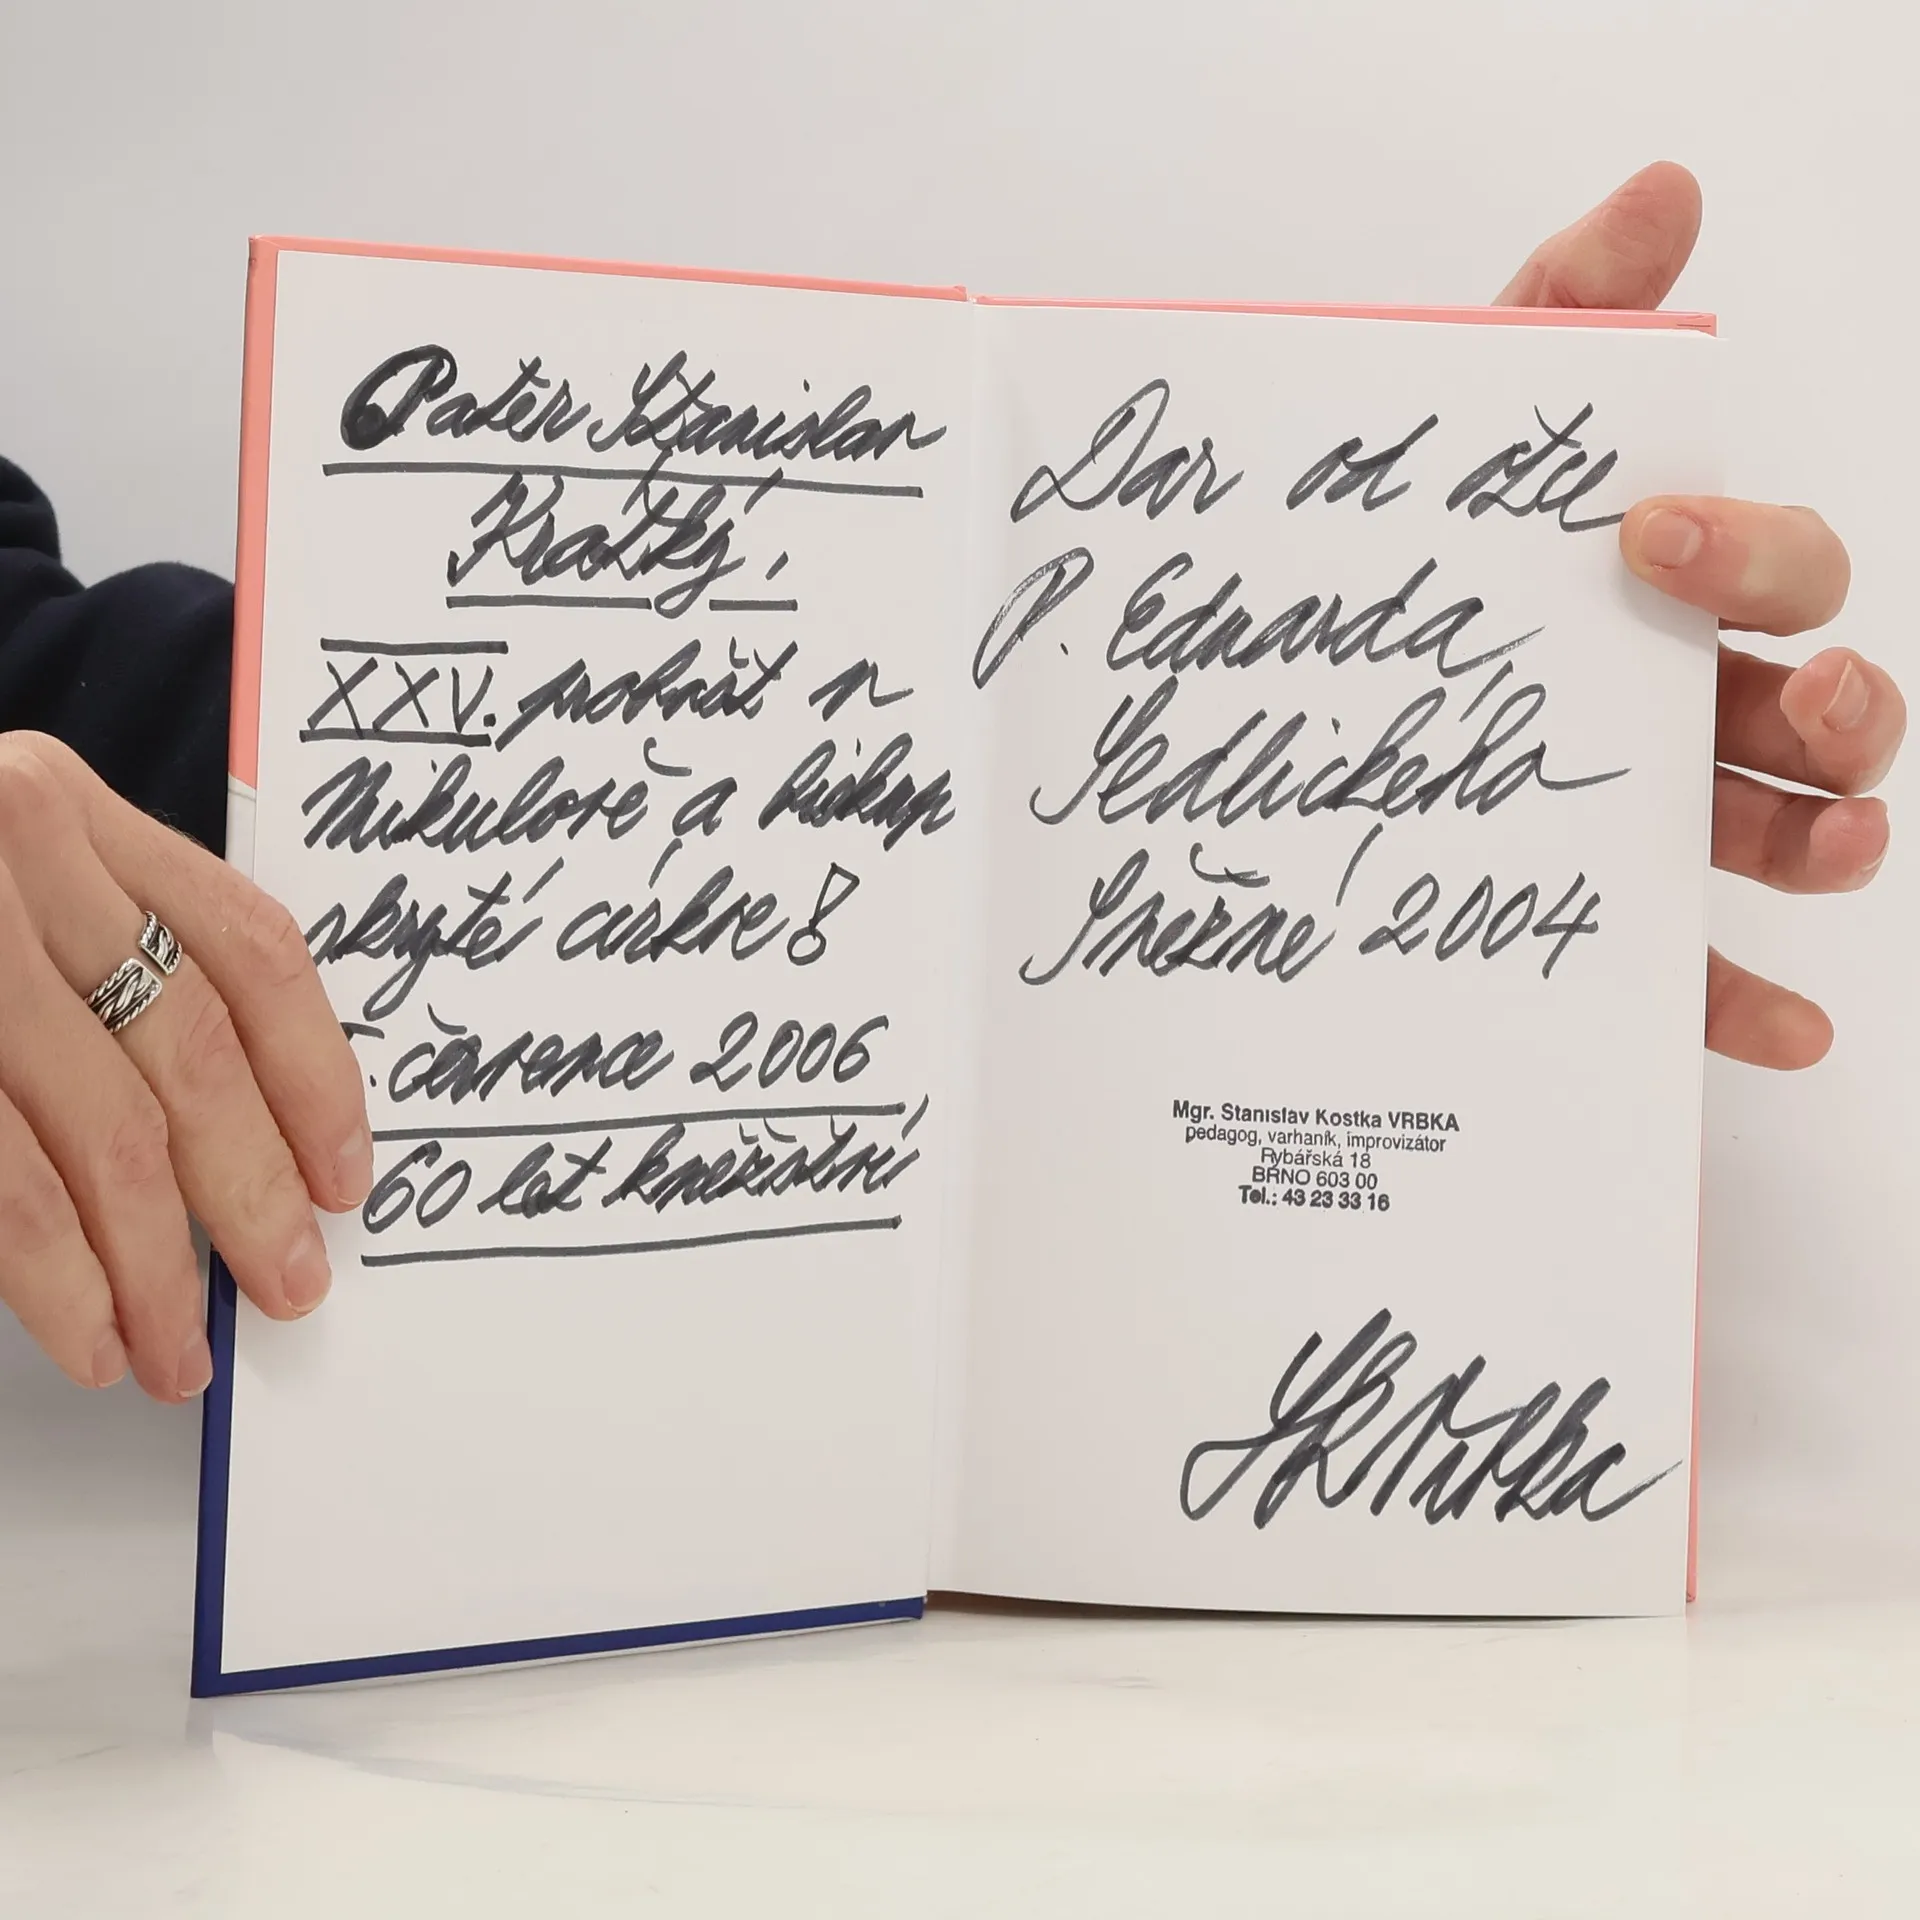 Páter Stanislav
Krátký!
XXV. probošt v
Mikulově a biskup
skryté církve!
. července 2006
60 let kněžství
Dar od otce
P. Eduarda
Sedlického
Sněžné 2004
Mgr. Stanislav Kostka VRBKA
pedagog, varhaník, improvizátor
Rybářská 18
BRNO 603 00
Tel.: 43 23 33 16
SKVrbka